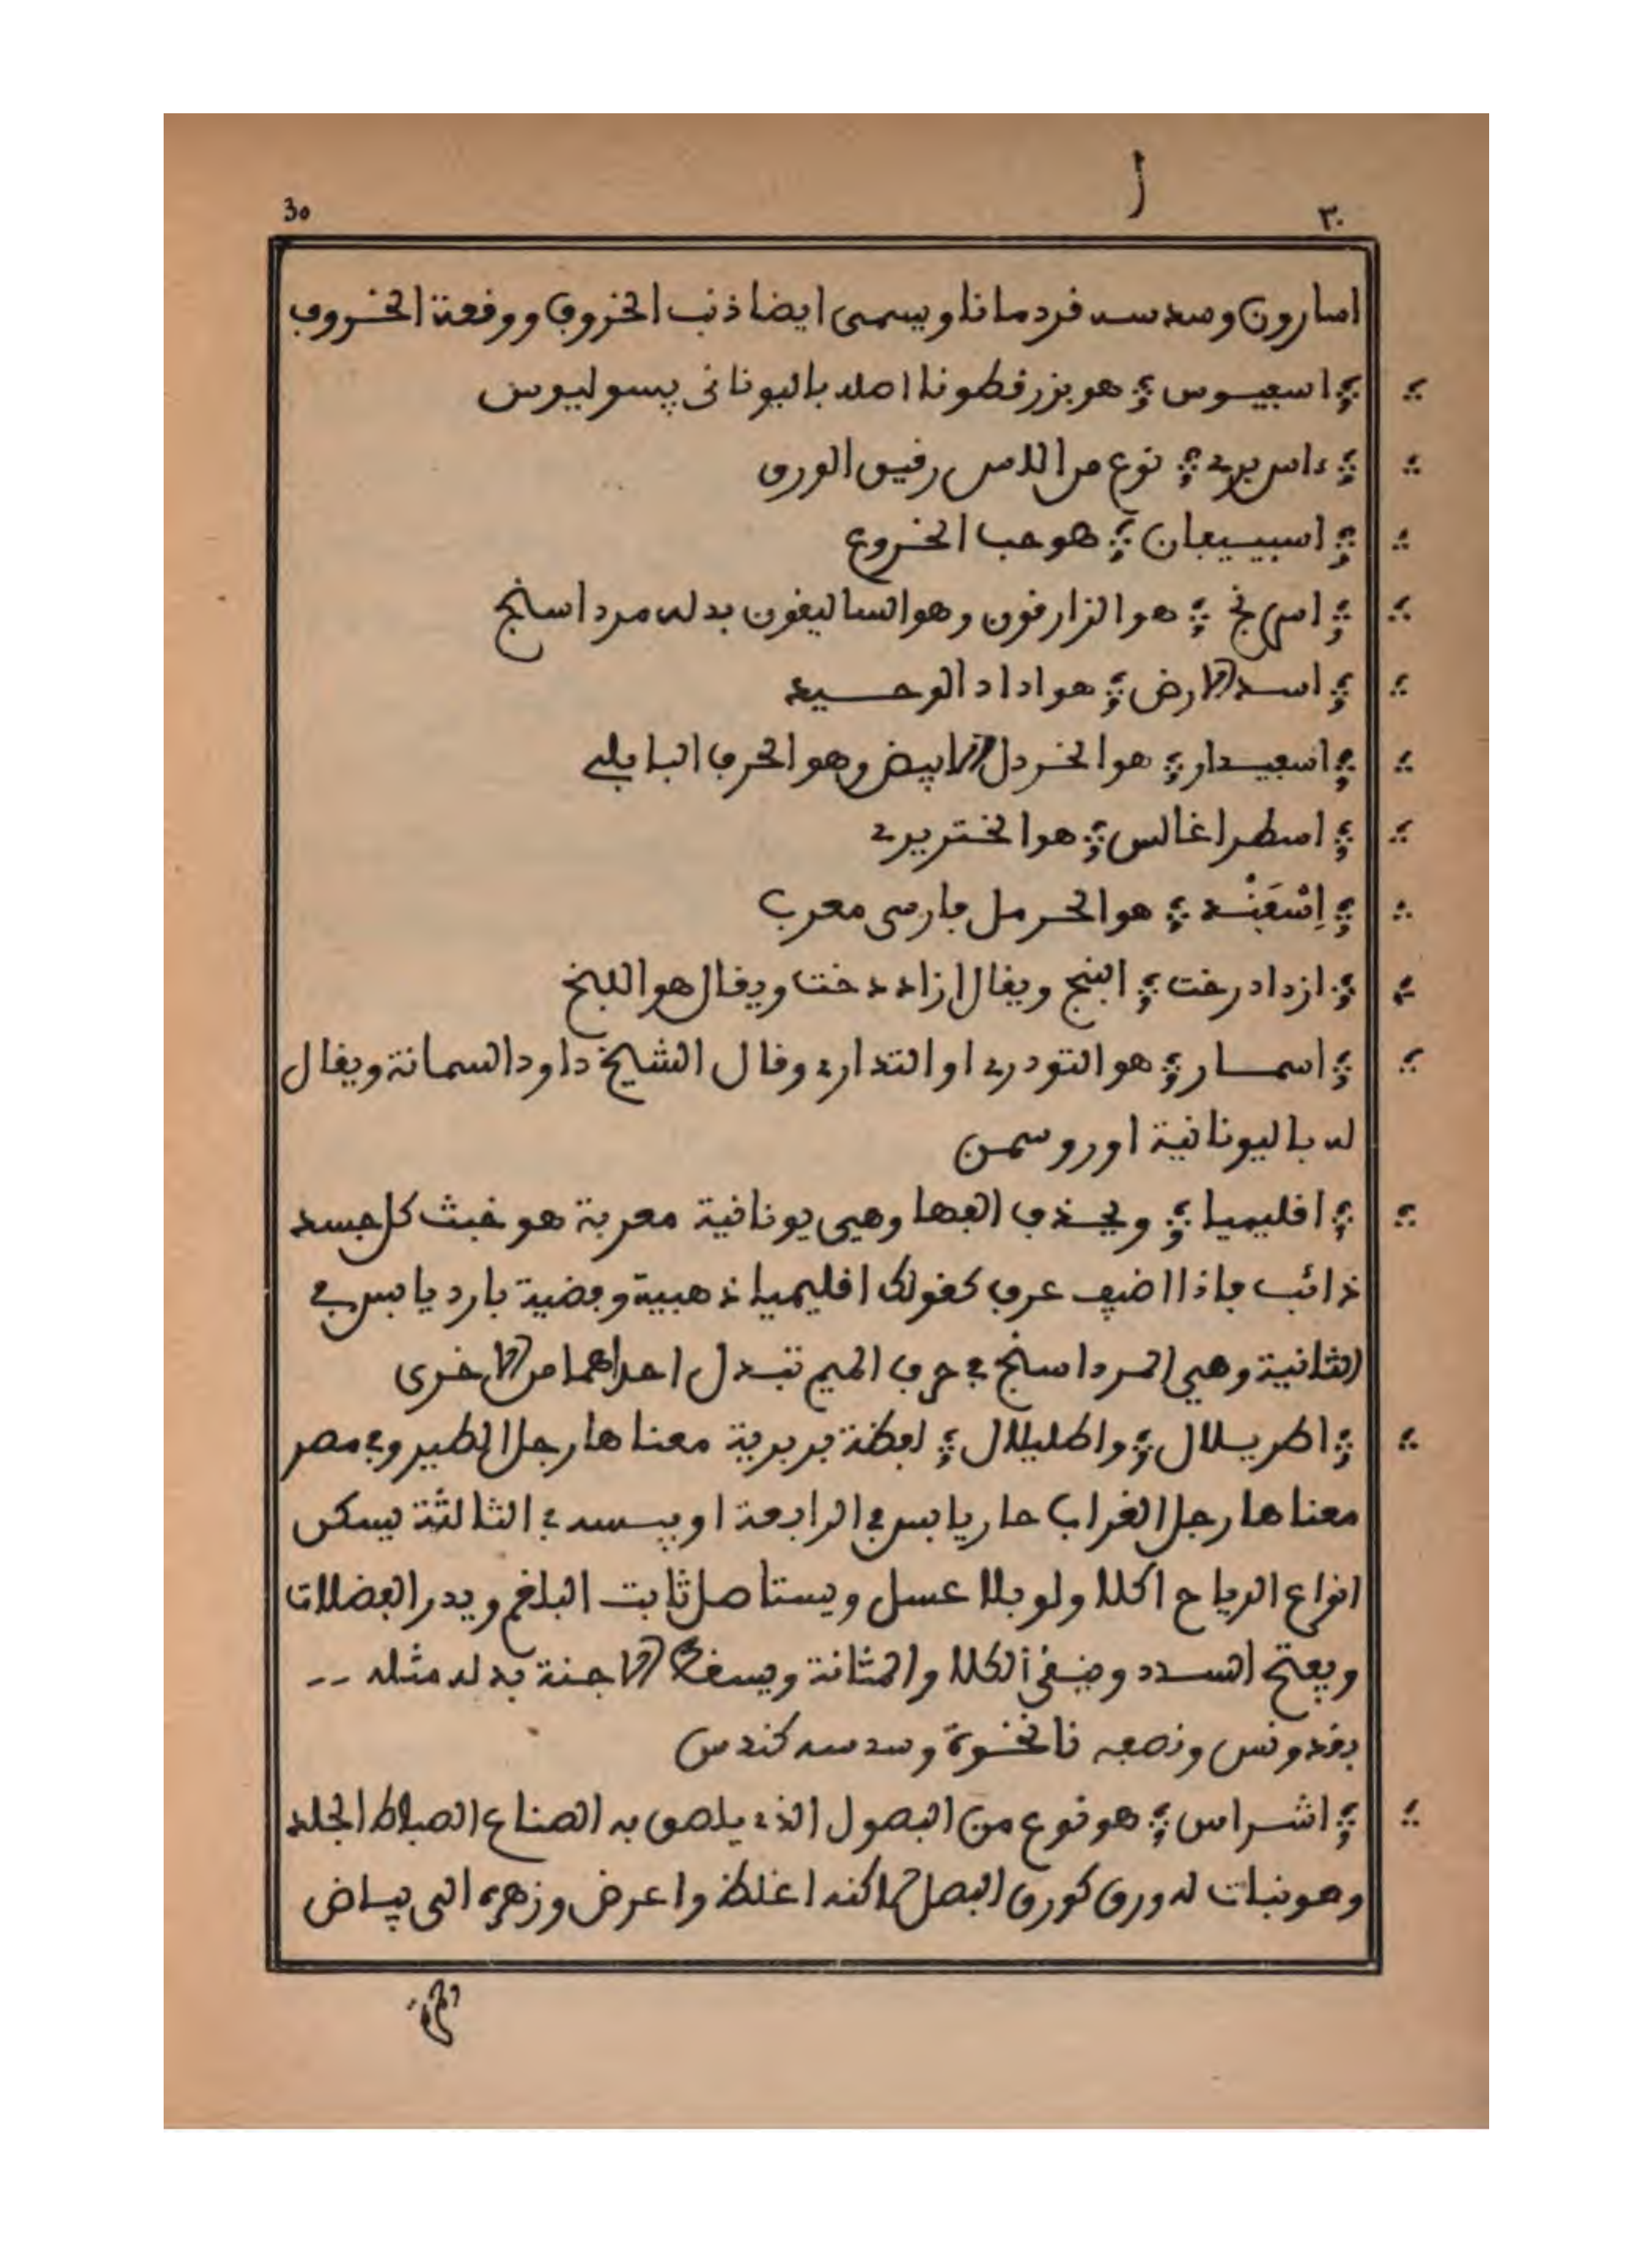 ا
٣٠ 30
اسارون وسدسه قردمانا ويسمى ايضا ذنب الخروف ووقعة الخروف
اسفيوس هو بزر قطونا اصله باليوناني پسوليوس
ءاس بري نوع من الاس رقيق الورق
هو حب الخروع
اسرنج هو الزارقون وهو الساليقون بدله مرداسنج
اسد الارض هو اداد الوحسيد
اسفيدار هو الخردل الابيض وهو الحرف البابلي
اسطراغالس هو الختريري
اِسْفَنْد هو الحرمل فارسي معرب
ازدادرخت ويقال ازاددخت ويقال هو اللبخ
اسمار هو التودري او التداري وقال الشيخ داود السمانة ويقال
له باليونانية اوروسمن
اقليميا ويحذف الفها وهي يونانية معربة هو خبث كل جسد
ذائب فاذا اضيف عرف كقولك اقليميا ذهبية وفضية بارد يابس في
الثانية وهي المرداسنج في حرف الميم تبدل احداهما من الاخرى
اطريلال واطليلال لفظة بربرية معناها رجل الطير وفي مصر
معناها رجل الغراب حار يابس في الرابعة او يبسه في الثالثة يسكن
انواع الرياح اكلا ولو بلا عسل ويستاصل ثابت البلغم ويدر الفضلات
ويفتح السدد وينقي الكلا والمثانة ويسقط الاجنة بدله مثله --
بقدونس ونصفه نانخوة وسدسه كندس
اشراس هو نوع من البصول الذي يلصق به الصناع الصباط الجلد
وهو نبات له ورق كورق البصل لاكنه اغلظ واعرض وزهره الى بياض